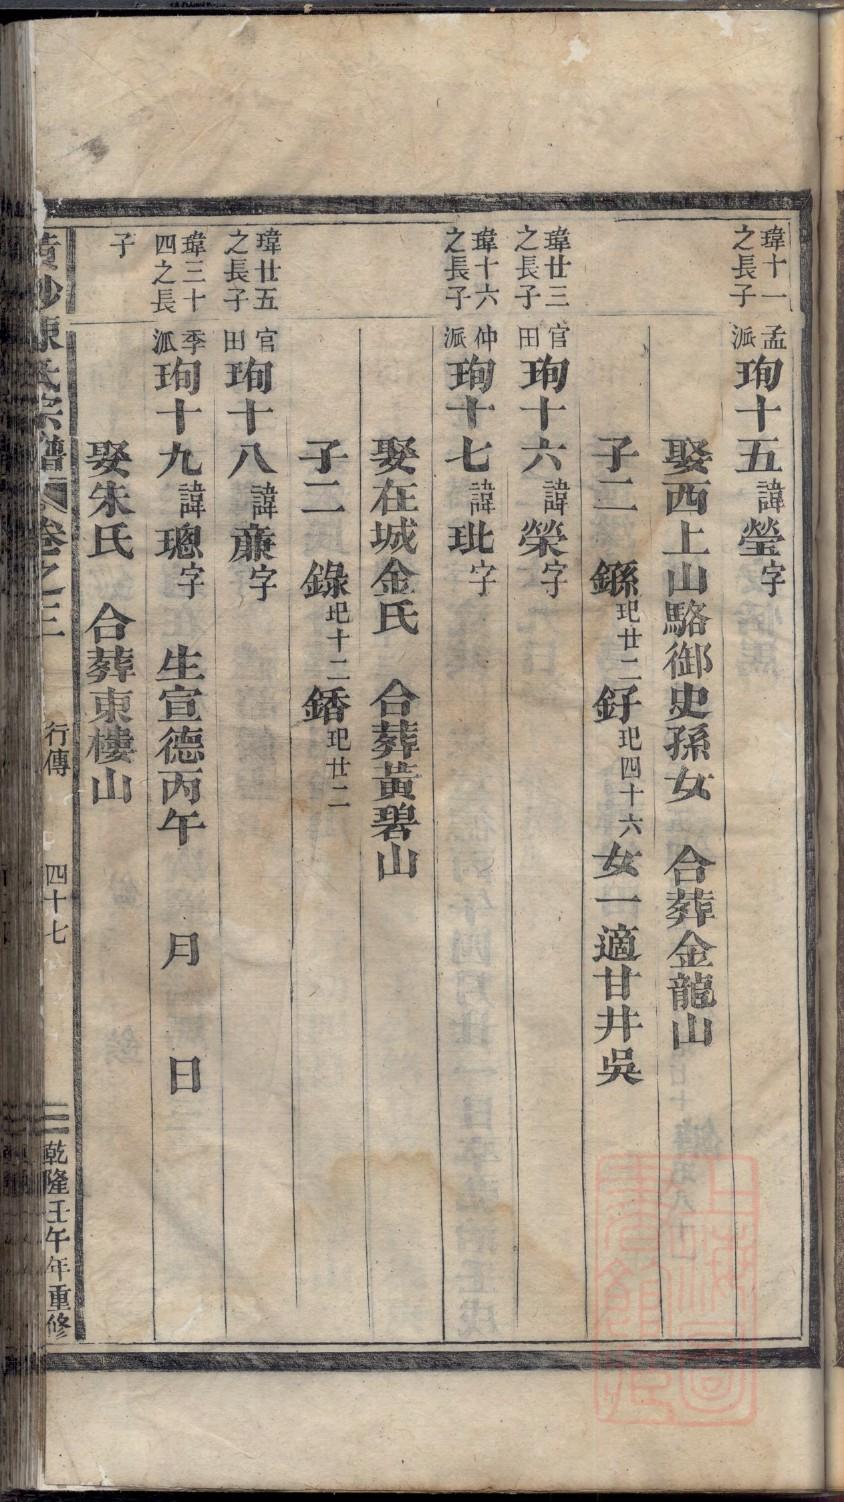 瑋十一之長子
孟派珣十五諱瑩字
娶西上山駱御史孫女 合葬金龍山
子二 鎍玘廿二 釪玘四十六 女一適甘井吳
瑋廿三之長子
官田珣十六諱榮字
瑋十六之長子
仲派珣十七諱玭字
娶在城金氏 合葬黃碧山
子二 錄玘十二 鐇玘廿二
瑋廿五之長子
官田珣十八諱蘼字
瑋三十四之長子
季派珣十九諱璁字 生宣德丙午 月 日
娶朱氏 合葬東樓山
陳氏宗譜 卷之三 行傳 四十七 乾隆壬午年重修
上海圖書館藏